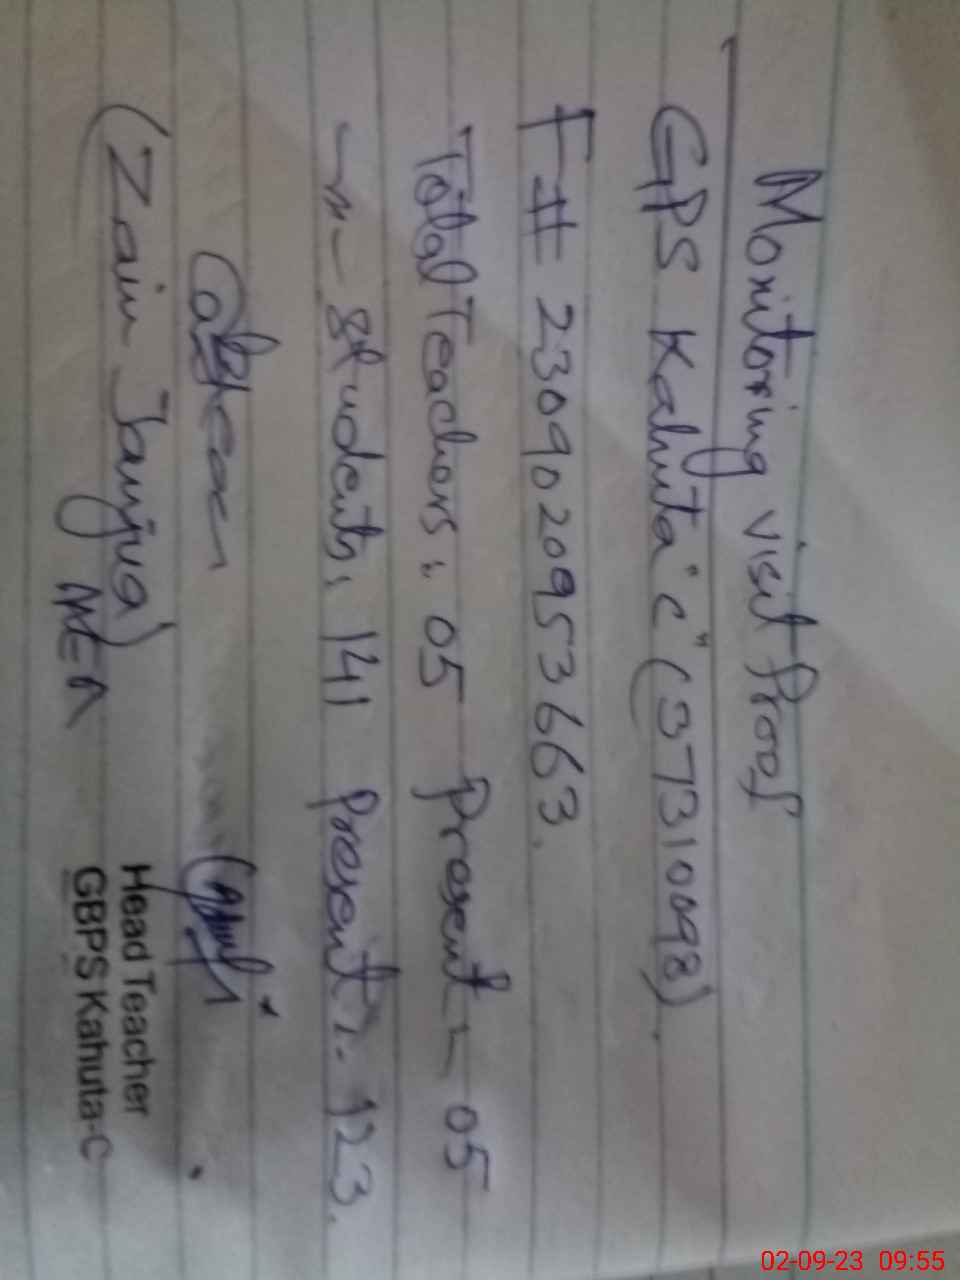 Monitoring visit Proof
GPS Kahuta "C" (37310098)
F# 2309020953663.
Total Teachers: 05 Present- 05
-"- Students: 141 Present:- 123.
(Zain Janjua)
AEA
Head Teacher
GBPS Kahuta-C
02-09-23 09:55